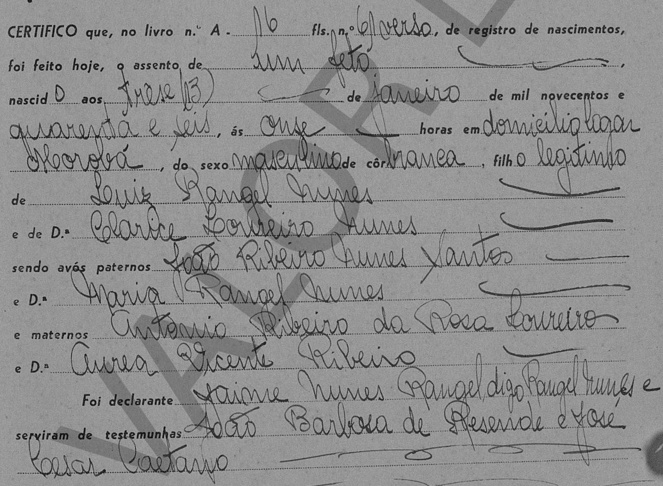 CERTIFICO que, no livro n.º A - 16 fls. n.º 61 verso, de registro de nascimentos,
foi feito hoje, o assento de um feto,
nascido aos treze (13) de janeiro de mil novecentos e
quarenta e seis, ás onze horas em domicilio lugar
, do sexo masculino de côr branca, filho legitimo
de Luiz Rangel Nunes
e de D.ª Clarice Loureiro Nunes
sendo avós paternos João Ribeiro Nunes Santos
e D.ª Maria Rangel Nunes
e maternos Antonio Ribeiro da Rosa Loureiro
e D.ª Aurea Vicente Ribeiro
Foi declarante Jaime Nunes Rangel digo Rangel Nunes e
serviram de testemunhas João Barbosa de Resende e José
Cesar Caetano
VALOR